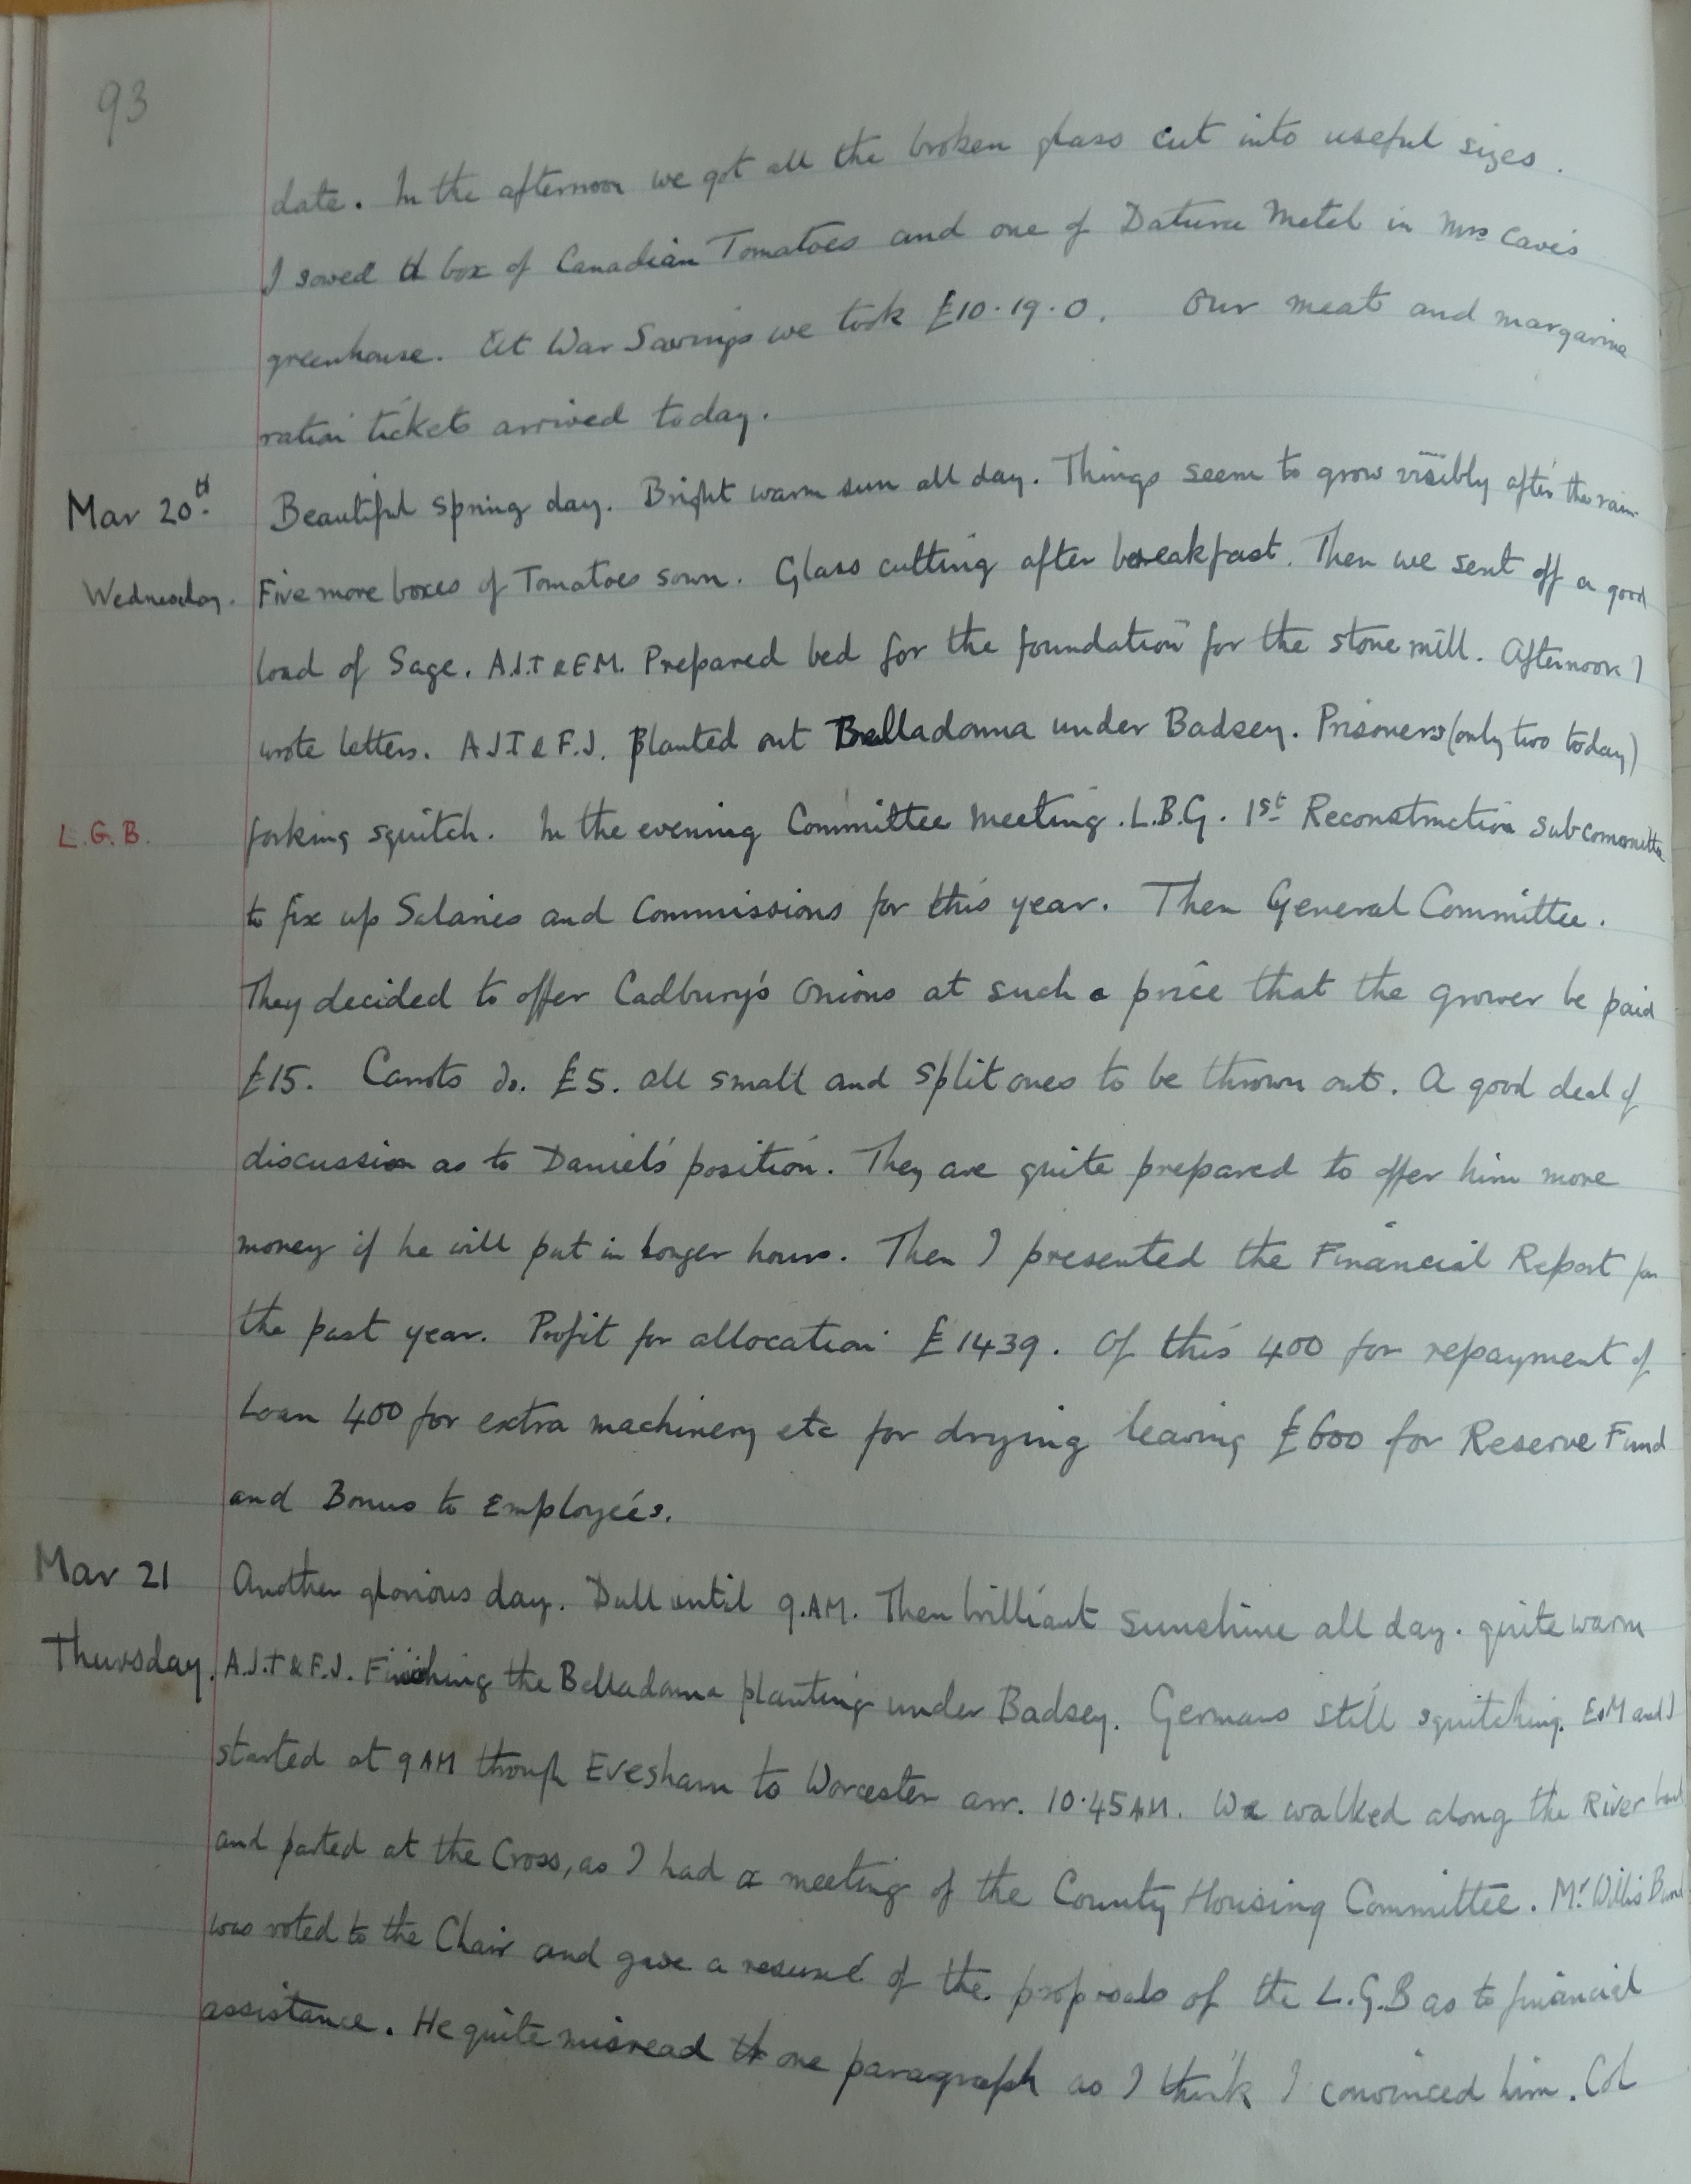 93
date. In the afternoon we got all the broken glass cut into useful sizes.
I sowed a box of Canadian Tomatoes and one of Datura Metel in Mrs Cave's
greenhouse. At War Savings we took £10.19.0. Our meat and margarine
ration tickets arrived today.
Mar 20th Beautiful spring day. Bright warm sun all day. Things seem to grow visibly after the rain
Wednesday. Five more boxes of Tomatoes sown. Glass cutting after breakfast. Then we sent off a good
load of Sage. A.J.T & E.M. Prepared bed for the foundation for the stone mill. Afternoon I
wrote letters. A J T & F.J. Planted out Belladonna under Badsey. Prisoners (only two today)
L.G.B. forking squitch. In the evening Committee Meeting. L.B.G. 1st Reconstruction subcommittee
to fix up Salaries and Commissions for this year. Then General Committee.
They decided to offer Cadbury's Onions at such a price that the grower be paid
£15. Carrots do. £5. all small and split ones to be thrown out. A good deal of
discussion as to Daniel's position. They are quite prepared to offer him more
money if he will put in longer hours. Then I presented the Financial Report for
the past year. Profit for allocation £1439. Of this 400 for repayment of
Loan 400 for extra machinery etc for drying leaving £600 for Reserve Fund
and Bonus to Employees.
Mar 21 Another glorious day. Dull until 9.AM. Then brilliant sunshine all day. quite warm
Thursday. A.J.T & F.J. Finishing the Belladonna planting under Badsey. Germans still squitching. E.M and I
started at 9 AM through Evesham to Worcester arr. 10.45 AM. We walked along the River bank
and parted at the Cross, as I had a meeting of the County Housing Committee. Mr Willis Bund
was voted to the Chair and gave a resumé of the proposals of the L.G.B as to financial
assistance. He quite misread one paragraph as I think I convinced him. Col